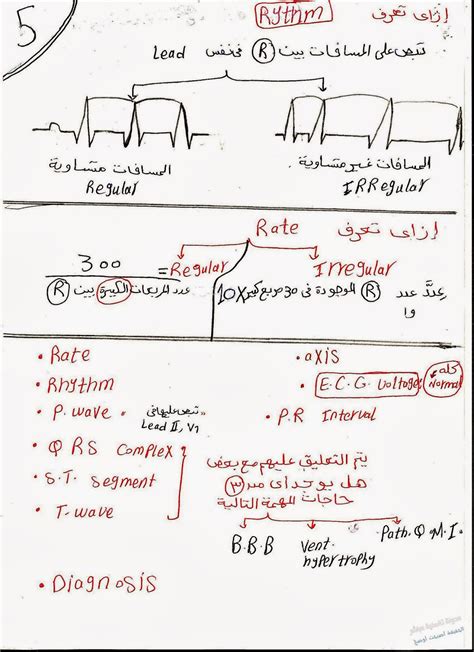 5
إزاى تعرف Rythm
تبص على المسافات بين R فى نفس Lead
المسافات متساوية
Regular
المسافات غير متساوية
IRRegular
إزاى تعرف Rate
Regular
Irregular
300
=
عدد المربعات الكبيرة بين R
10X
عدد R الموجودة فى 30 مربع كبير
• Rate
• Rhythm
• P. wave / تبص عليها فى
Lead II, V1
• QRS complex
• S.T. segment
• T-wave
• aXIS
• E.C.G voltages كله Normal
• P.R Interval
يتم التعليق عليهم مع بعض
هل يوجد اى من 3
حاجات المهمة التالية
B.B.B
Vent
hypertrophy
Path.Q.M.I.
• Diagnosis